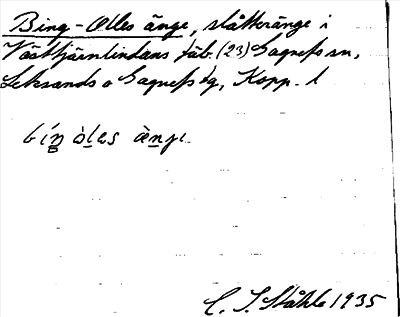 Bing-Olles änge, slåtteränge i
Västtjärnlindans fäb. (23) Gagnefs sn,
Leksands o Gagnefs tg, Kopp. l
bíŋ òles ènje
C. I. Ståhle 1935